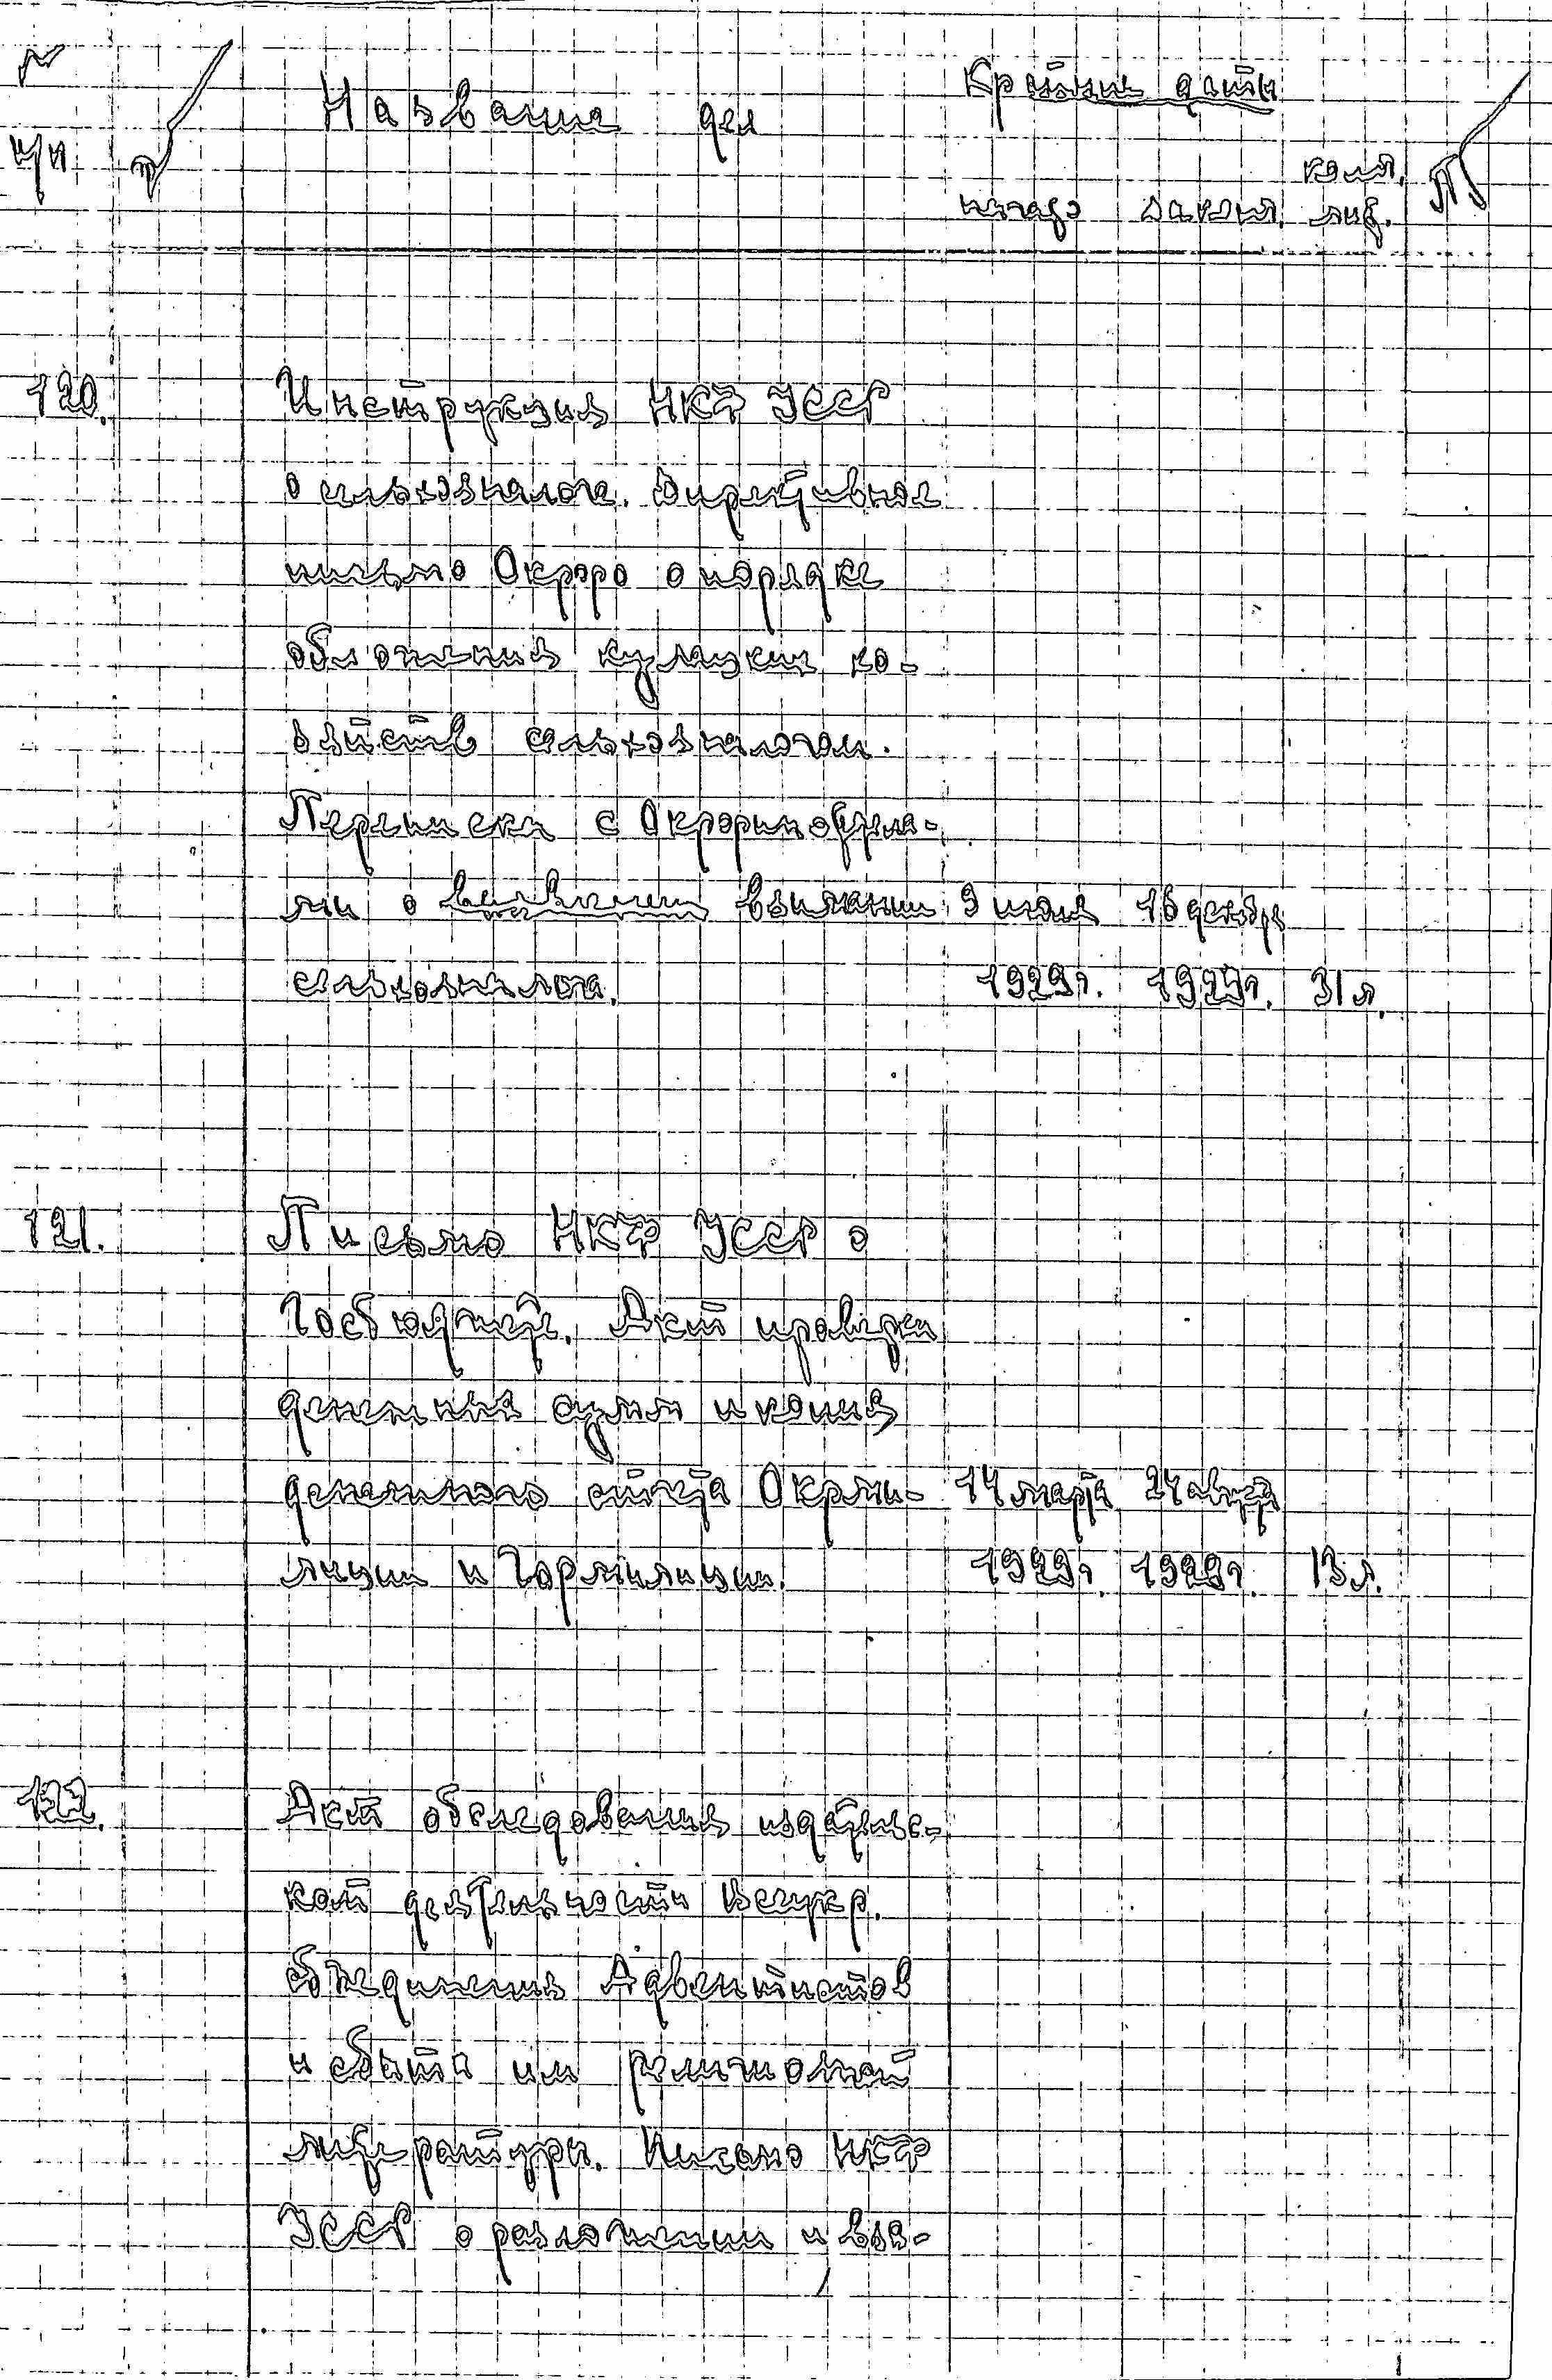 № Название дел Крайние даты
п/п колич.
начало законч. лист.
120. Инструкция НКФ УССР
о сельхозналоге. Директивное
письмо Окрфо о порядке
обложения кулацких хо-
зяйств сельхозналогом.
Переписка с Окрфинотдела-
ми о взимании 9 июля 16 декабр
сельхозналога. 1929г. 1929г. 31 л.
121. Письмо НКФ УССР о
Госбюджете. Акт проверки
денежных сумм и копия
денежного отчета Окрми- 14 марта 24 августа
лиции и Гормилиции. 1929г. 1929г. 13 л.
122. Акт обследования издательс-
кой деятельности Всеукр.
объединения Адвентистов
и сбыта им религиозной
литературы. Письмо НКФ
УССР о разложении и взы-